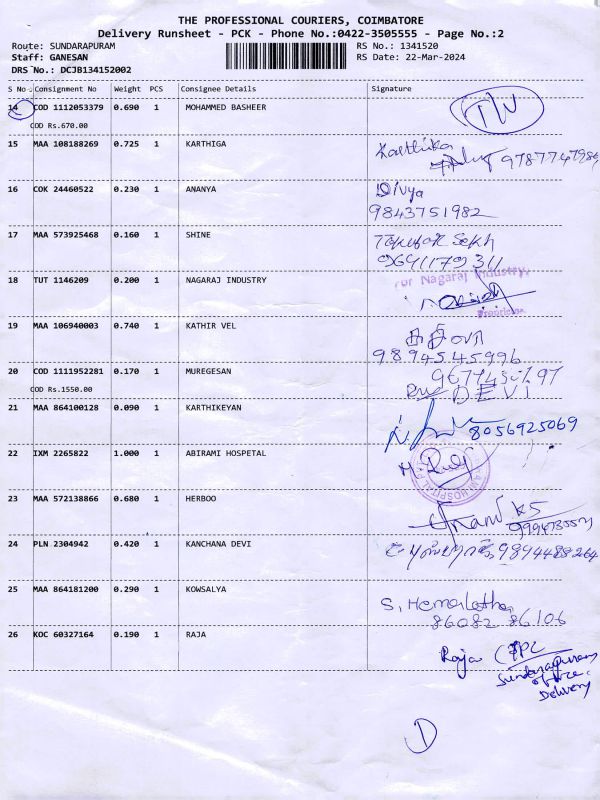 THE PROFESSIONAL COURIERS, COIMBATORE
Delivery Runsheet - PCK - Phone No.:0422-3505555 - Page No.:2
Route: SUNDARAPURAM RS No.: 1341520
Staff: GANESAN RS Date: 22-Mar-2024
DRS No.: DCJB134152002
S No Consignment No Weight PCS Consignee Details Signature
14 COD 1112053379 0.690 1 MOHAMMED BASHEER
COD Rs.670.00
15 MAA 108188269 0.725 1 KARTHIGA Karthika
16 COK 24460522 0.230 1 ANANYA Divya
9843751982
17 MAA 573925468 0.160 1 SHINE
9641179311
18 TUT 1146209 0.200 1 NAGARAJ INDUSTRY For Nagaraj Industry,
19 MAA 106940003 0.740 1 KATHIR VEL
9894545996
20 COD 1111952281 0.170 1 MUREGESAN
COD Rs.1550.00 DEVI
21 MAA 864100128 0.090 1 KARTHIKEYAN 8056925069
22 IXM 2265822 1.000 1 ABIRAMI HOSPETAL
23 MAA 572138866 0.680 1 HERBOO
24 PLN 2304942 0.420 1 KANCHANA DEVI 9894488264
25 MAA 864181200 0.290 1 KOWSALYA S. Hemalatha
86082 86106
26 KOC 60327164 0.190 1 RAJA Raja
Sundarapuram
office
Delivery